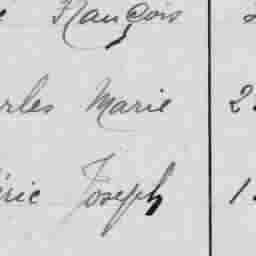 François
rles Marie 2
éric Joseph 1